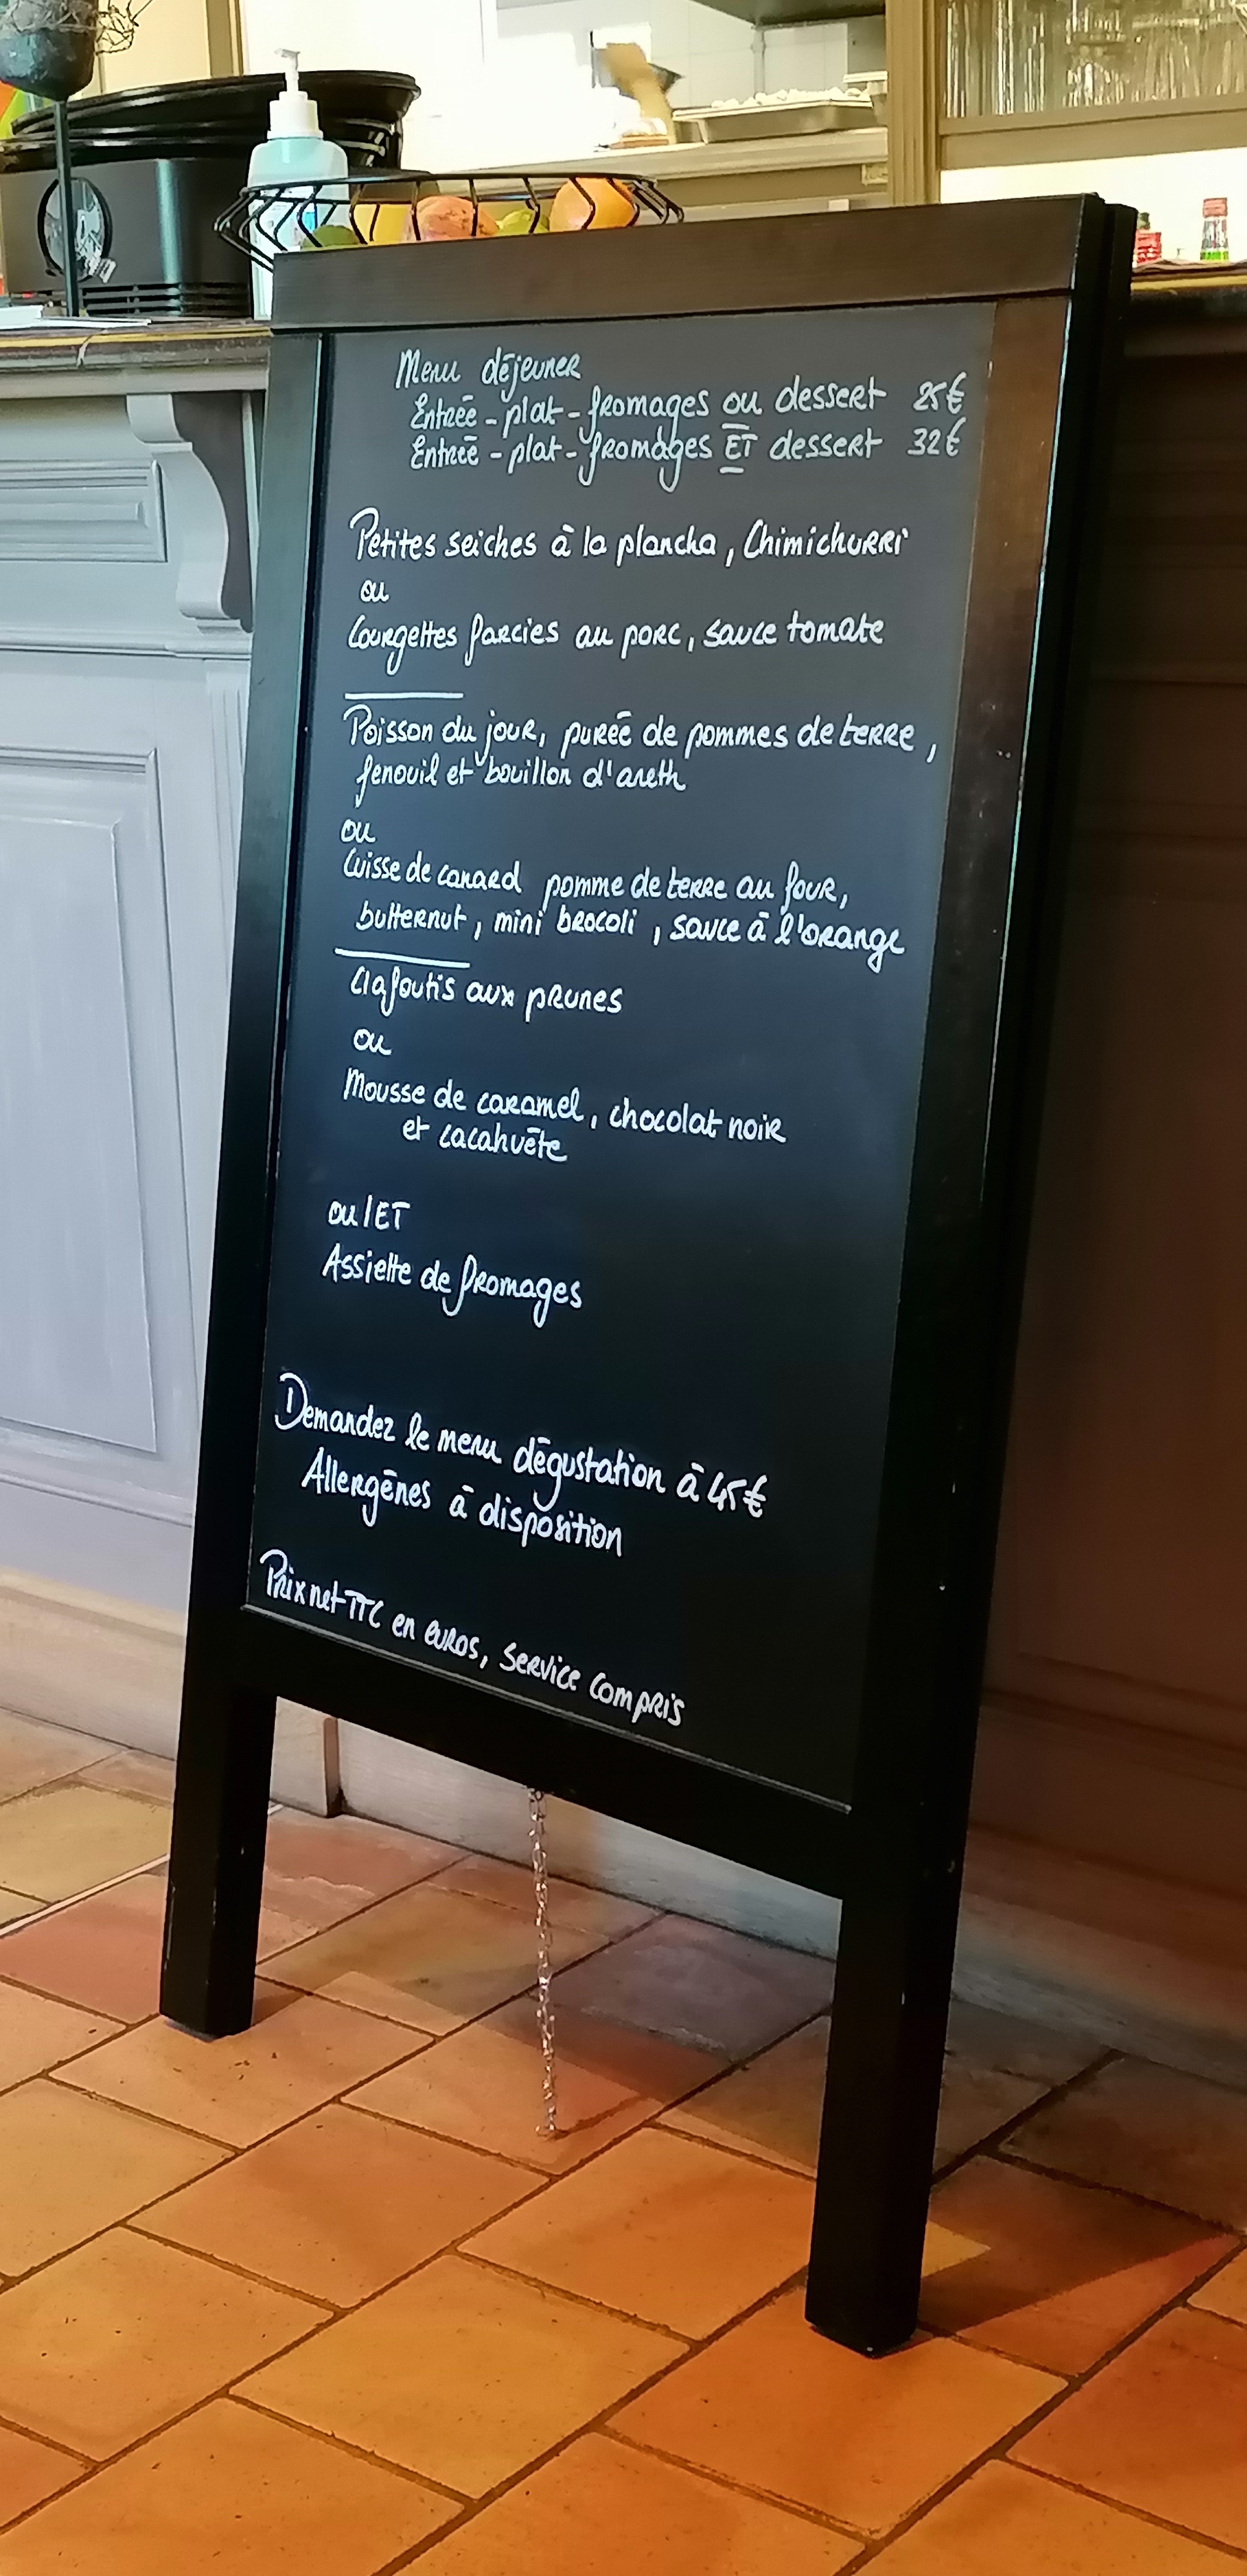 Menu déjeuner
Entrée - plat - fromages ou dessert 25€
Entrée - plat - fromages ET dessert 32€
Petites seiches à la plancha, Chimichurri
ou
Courgettes farcies au porc, sauce tomate
Poisson du jour, purée de pommes de terre,
fenouil et bouillon d'aneth
ou
Cuisse de canard pomme de terre au four,
butternut, mini brocoli, sauce à l'orange
Clafoutis aux prunes
ou
Mousse de caramel, chocolat noir
et cacahuète
ou/ET
Assiette de fromages
Demandez le menu dégustation à 45€
Allergènes à disposition
Prix net TTC en euros, service compris